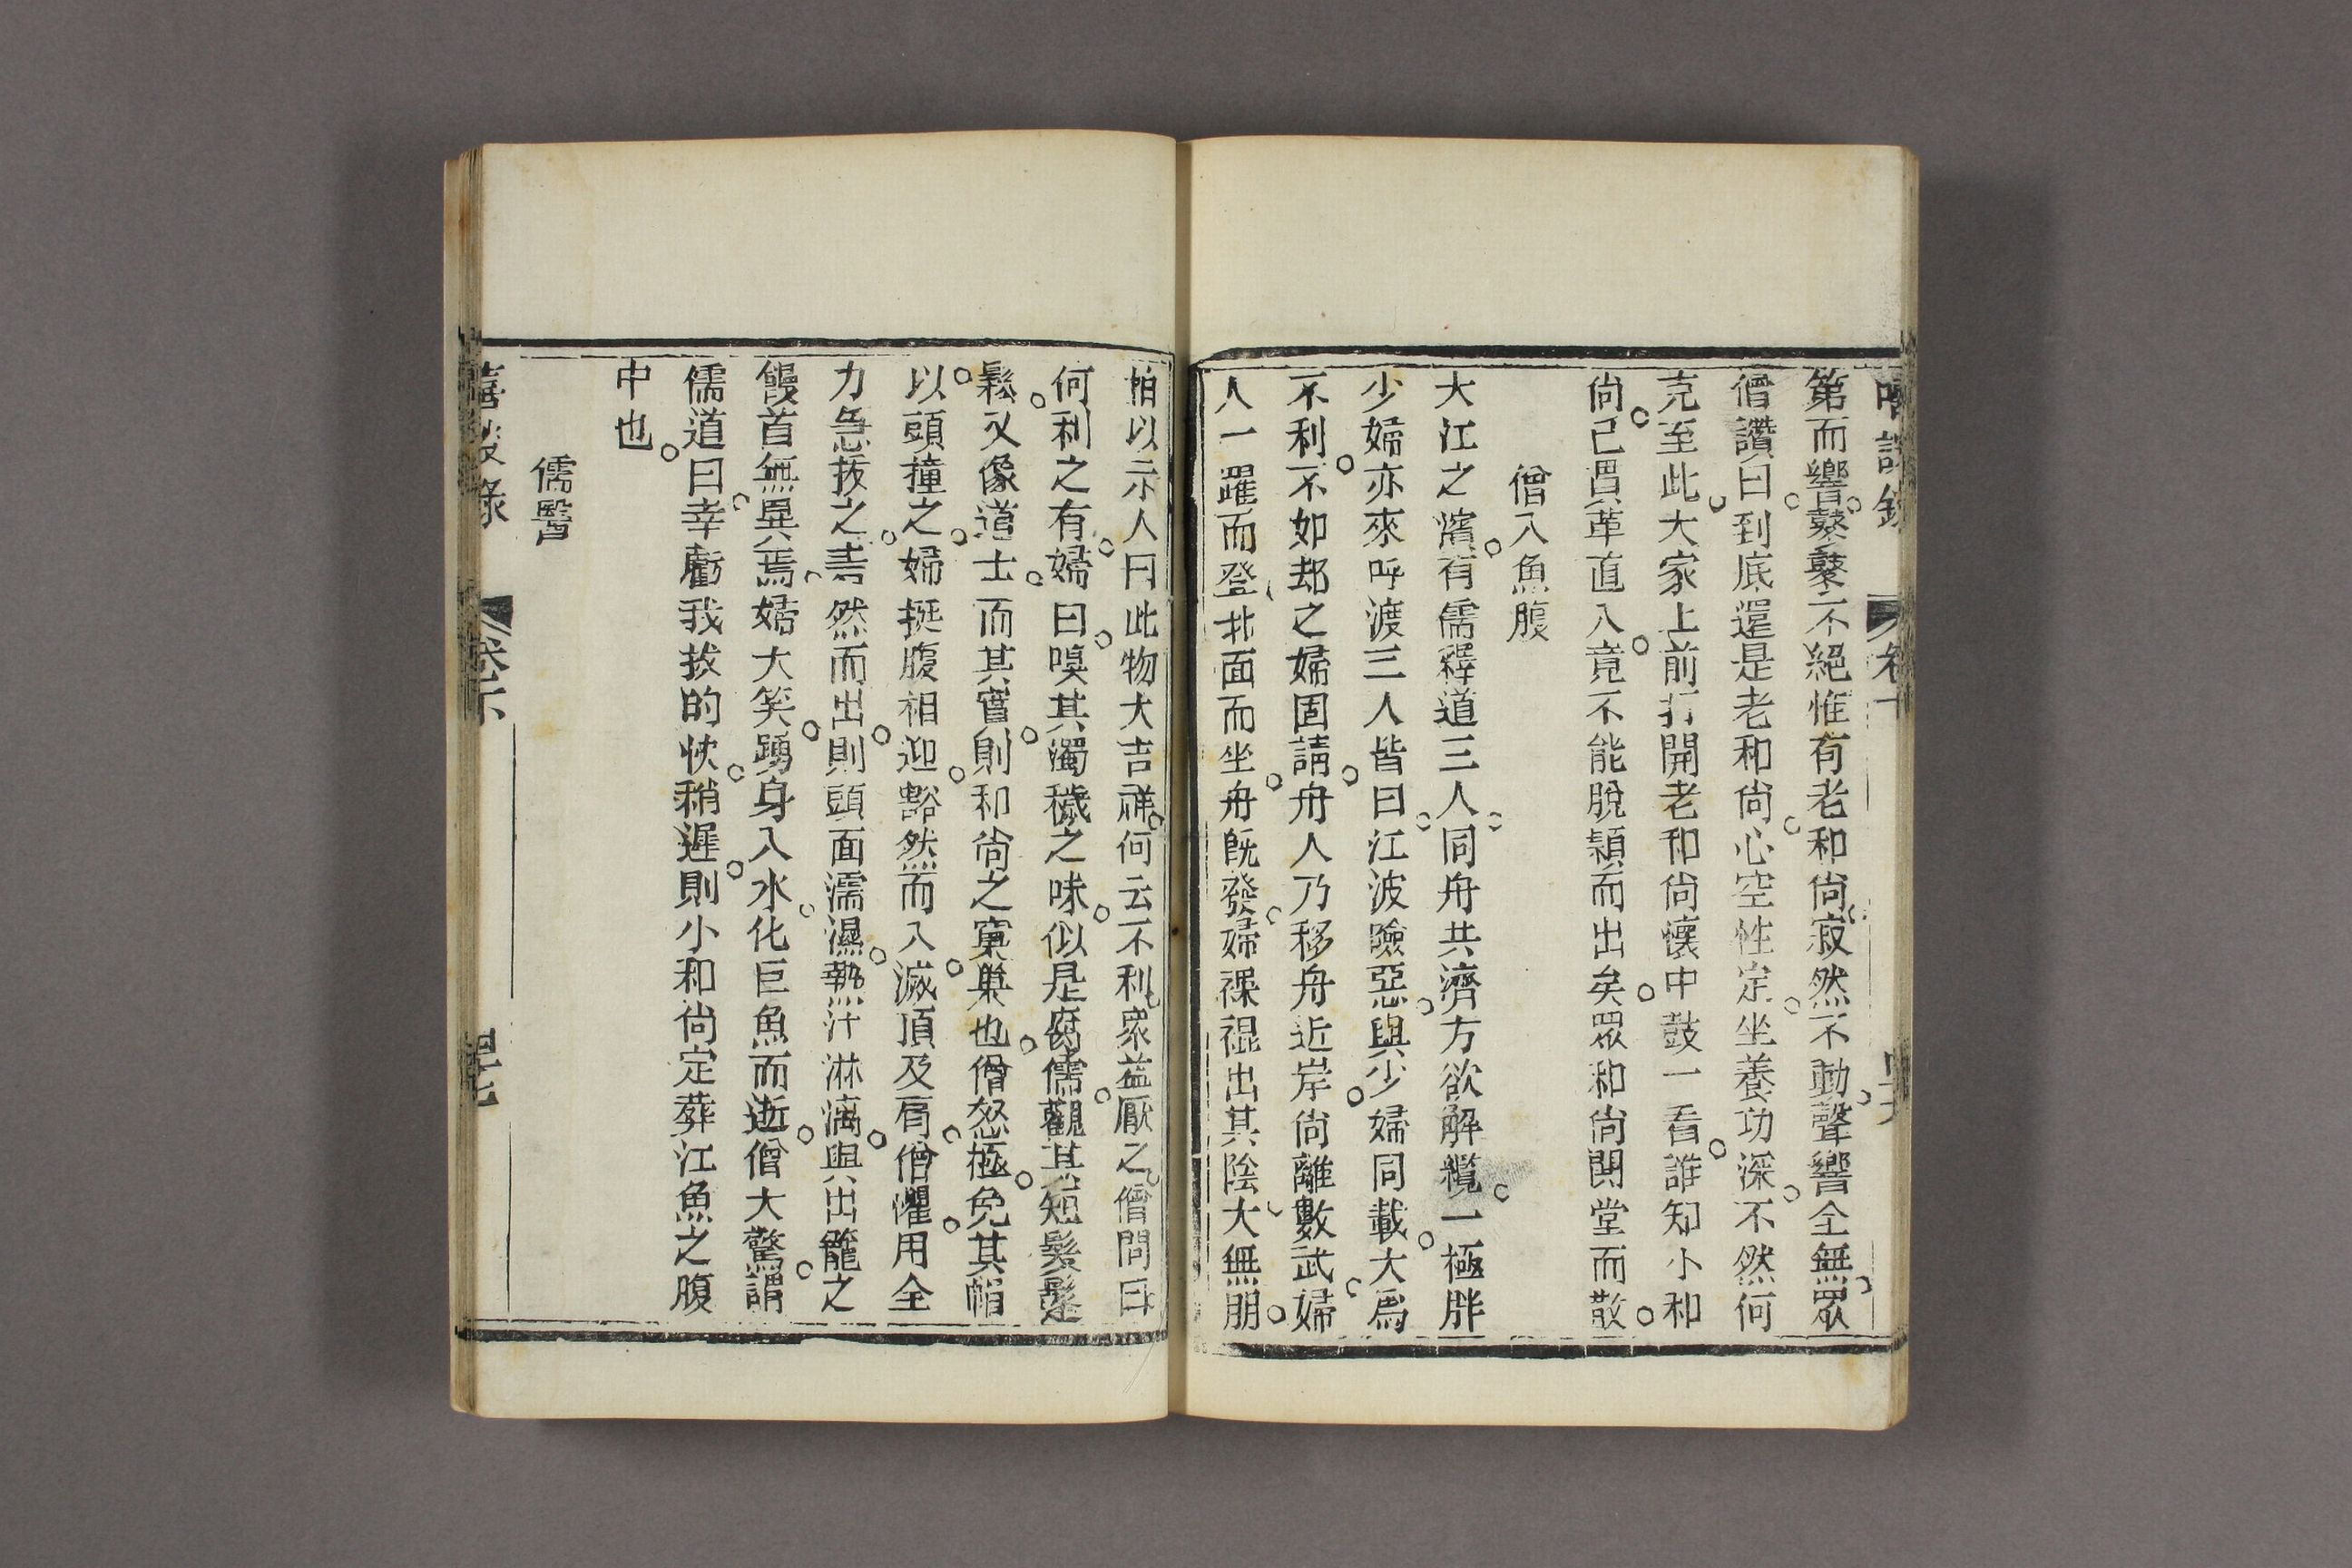 第而響鼕鼕不絕惟有老和尙寂然不動聲響全無眾
僧讚曰到底還是老和尙心空性定坐養功深不然何
克至此大家上前打開老和尙懷中鼓一看誰知小和
尙已冒革直入竟不能脫頴而出矣眾和尙鬨堂而散
僧入魚腹
大江之濱有儒釋道三人同舟共濟方欲解纜一極胖
少婦亦來呼渡三人皆曰江波險惡與少婦同載大爲
不利不如却之婦固請舟人乃移舟近岸尙離數武婦
人一躍而登北面而坐舟旣發婦裸裩出其陰大無朋
拍以示人曰此物大吉祥何云不利衆益厭之僧問曰
何利之有婦曰嗅其濁穢之味似是腐儒觀其短髮鬔
鬆又像道士而其實則和尙之窠巢也僧怒極免其帽
以頭撞之婦挺腹相迎豁然而入滅頂及肩僧懼用全
力急拔之砉然而出則頭面濡濕熱汁淋漓與出籠之
饅首無異焉婦大笑踴身入水化巨魚而逝僧大驚謂
儒道曰幸虧我拔的快稍遲則小和尙定葬江魚之腹
中也
儒醫
錄
卷下